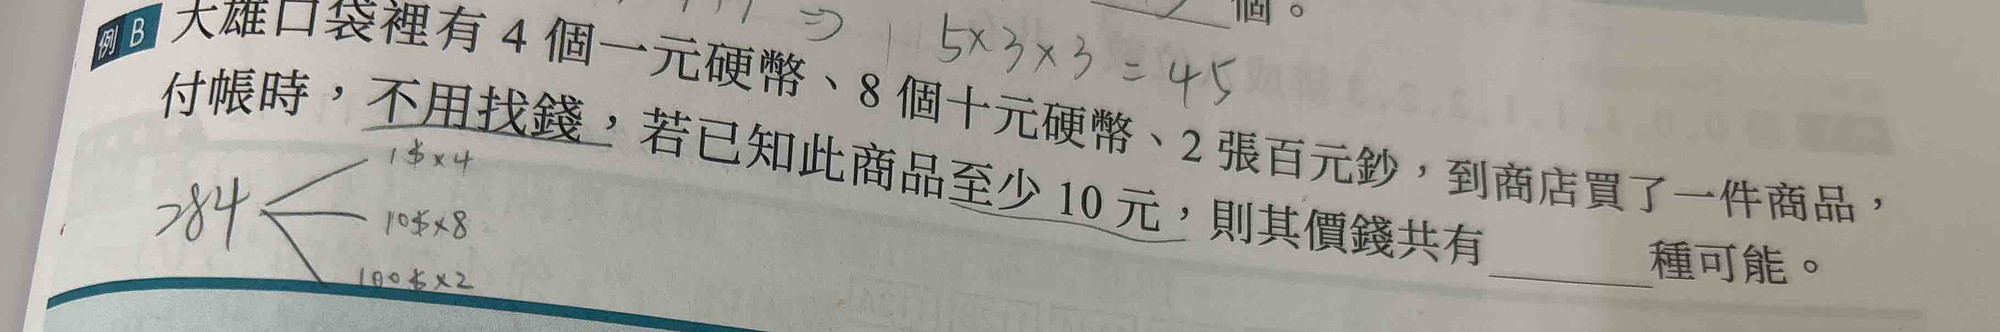 個。
⇒ 5×3×3=45
例 B 大雄口袋裡有 4 個一元硬幣、8 個十元硬幣、2 張百元鈔,到商店買了一件商品,
付帳時,不用找錢,若已知此商品至少 10 元,則其價錢共有______種可能。
284
1$×4
10$×8
100$×2